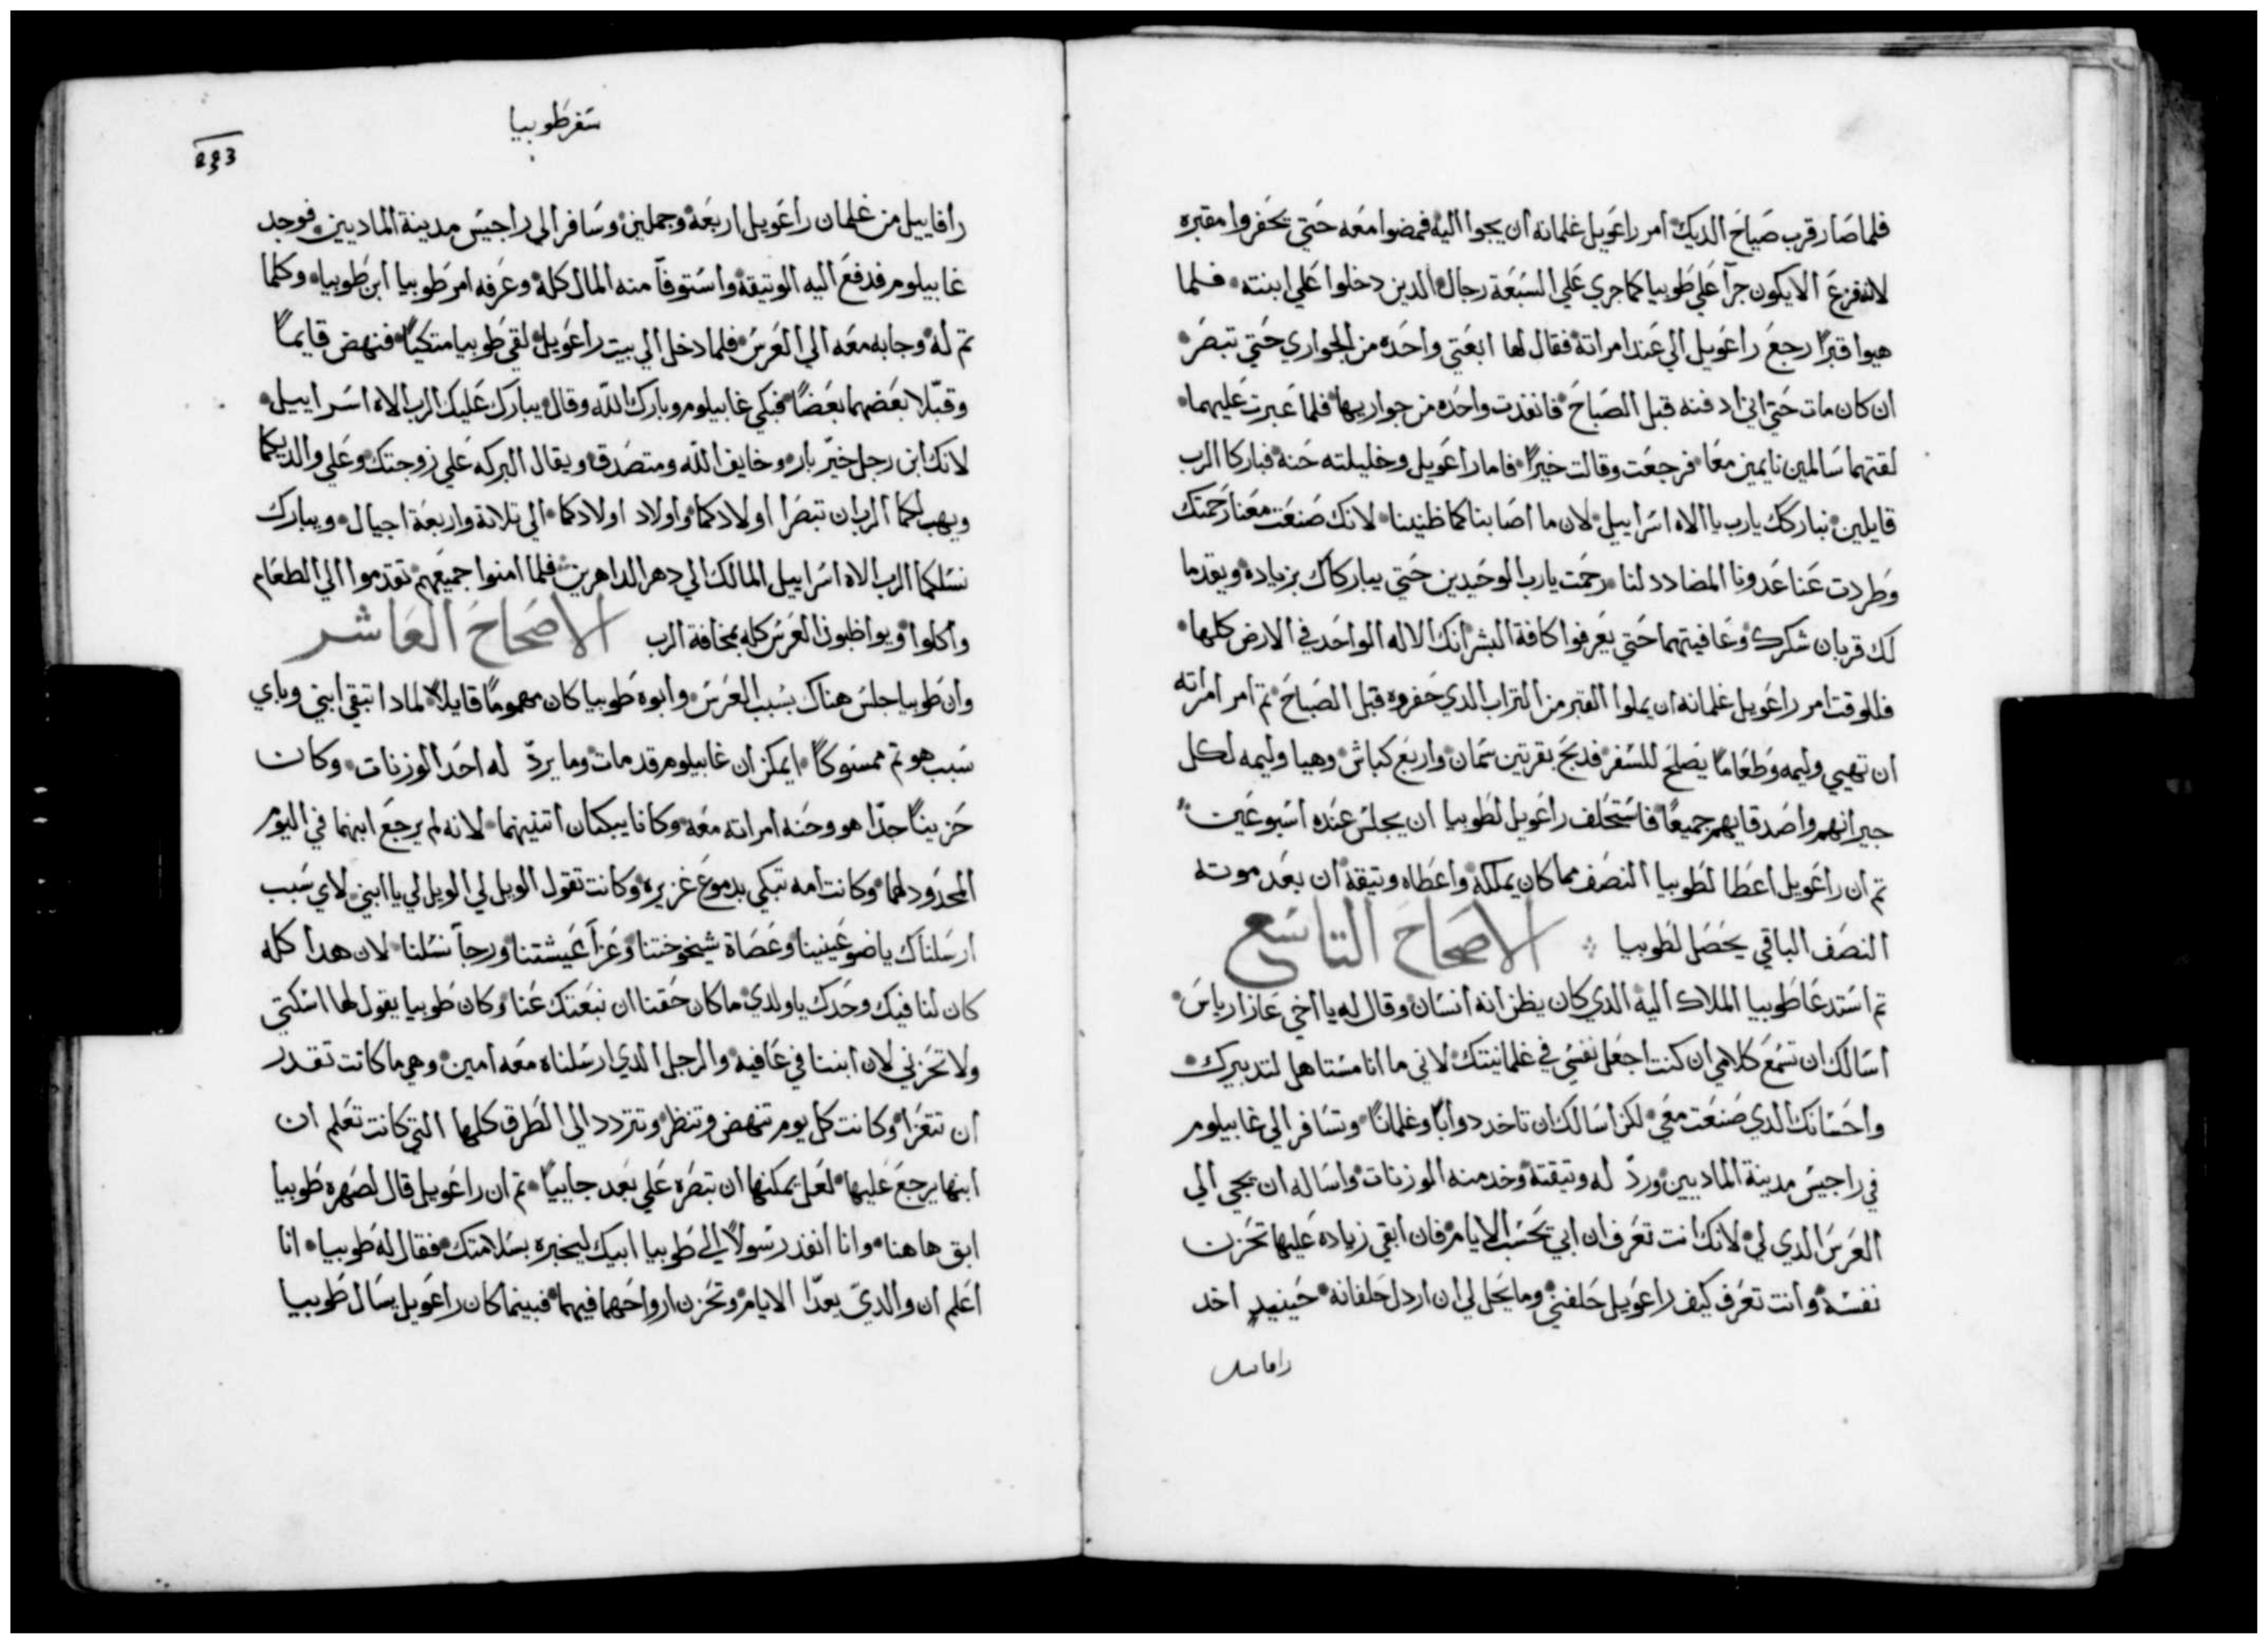 فلما صار قرب صياح الديك امر راعويل غلمانه ان يجوا اليه فمضوا معه حتي يحفروا مقبره
لانه فزع الا يكون جرآ علي طوبيا كما جري علي السبعة رجال الدين دخلوا علي ابنته فلما
هيوا قبرًا رجع راعويل الي عند امراته فقال لها ابعتي واحده من الجواري حتي تبصر
ان كان مات حتي اني ادفنه قبل الصباح فانفذت واحده من جواريها فلما عبرت عليهما
لقتهما سالمين نايمين معا فرجعت وقالت خيرًا فاما راعويل وخليلته حنه فباركا الرب
قايلين نباركك يارب يا الاه اسراييل لان ما اصابنا كما ظنينا لانك صنعت معنا رحمتك
وطردت عنا عدونا المضادد لنا رحمت يارب الوحيدين حتي يباركاك بزياده ويقدما
لك قربان شكرك وعافيتهما حتي يعرفوا كافة البشر انك الاله الواحد في الارض كلها
فللوقت امر راعويل غلمانه ان يملوا القبر من التراب الدي حفروه قبل الصباح تم امر امراته
ان تهيي وليمه وطعامًا يصلح للسفر فدبح بقرتين سمان واربع كباش وهيا وليمه لكل
جيرانهم واصدقايهم جميعًا فاستحلف راعويل لطوبيا ان يجلس عنده اسبوعين
تم ان راعويل اعطا لطوبيا النصف مما كان يملكه واعطاه وتيقة ان بعد موته
النصف الباقي يحصل لطوبيا الاصحاح التاسع
تم استدعا طوبيا الملاك اليه الدي كان يظن انه انسان وقال له يا اخي عازارياس
اسالك ان تسمع كلامي ان كنت اجعل نفسي في غلمانيتك لاني ما انا مستاهل لتدبيرك
واحسانك الدي صنعت معي لكن اسالك ان تاخد دوابًا وغلمانًا وتسافر الي غابيلوم
في راجيس مدينة الماديين ورد له وتيقته وخد منه الوزنات واساله ان يجي الي
العرس الدي لي لانك انت تعرف ان ابي يحسب الايام فان ابقي زياده عليها تحزن
نفسه وانت تعرف كيف راعويل حلفني وما يحل لي ان اردل حلفانه حينيدٍ اخد
رافاييل
سفر طوبيا
رافاييل من غلمان راعويل اربعه وجملين وسافر الي راجيس مدينة الماديين فوجد
غابيلوم فدفع اليه الوتيقة واستوفآ منه المال كله وعرفه امر طوبيا ابن طوبيا وكلما
تم له وجابه معه الي العرس فلما دخل الي بيت راعويل لقي طوبيا متكيًا فنهض قايمًا
وقبّلا بعضهما بعضًا فبكي غابيلوم وبارك الله وقال يبارك عليك الرب الاه اسراييل
لانك ابن رجل خيّر بار وخايف الله ومتصدق ويقال البركه علي زوجتك وعلي والديكما
ويهب لكما الرب ان تبصرا اولادكما واولاد اولادكما الي تلاتة واربعة اجيال ويبارك
نسلكما الرب الاه اسراييل المالك الي دهر الداهرين فلما امنوا جميعهم تقدموا الي الطعام
واكلوا ويواظبون العرس كله بمخافة الرب الاصحاح العاشر
وان طوبيا جلس هناك بسبب العرس وابوه طوبيا كان مهمومًا قايلًا لمادا تبقي ابني وباي
سبب هو تم ممسوكًا ايمكن ان غابيلوم قد مات وما يردّ له احد الوزنات وكان
حزينًا جدًا هو وحنه امراته معه وكانا يبكيان اتنينهما لانه لم يرجع ابنهما في اليوم
المحدود لهما وكانت امه تبكي بدموع غزيره وكانت تقول الويل لي الويل لي يا ابني لاي سبب
ارسلناك يا ضو عينينا وعصاة شيخوختنا وعزآ عيشتنا ورجآ نسلنا لان هدا كله
كان لنا فيك وحدك ياولدي ما كان حقنا ان نبعتك عنا وكان طوبيا يقول لها اسكتي
ولا تحزني لان ابننا في عافيه والرجل الدي ارسلناه معه امين وهي ما كانت تقدر
ان تتعزا وكانت كل يوم تنهض وتنظر وتتردد الي الطرق كلها التي كانت تعلم ان
ابنها يرجع عليها لعل يمكنها ان تبصره علي بعد جاييًا تم ان راعويل قال لصهره طوبيا
ابق هاهنا وانا انفذ رسولًا الي طوبيا ابيك ليخبره بسلامتك فقال له طوبيا انا
اعلم ان والديّ يعدّا الايام وتحزن ارواحهما فيهما فبينما كان راعويل يسال طوبيا